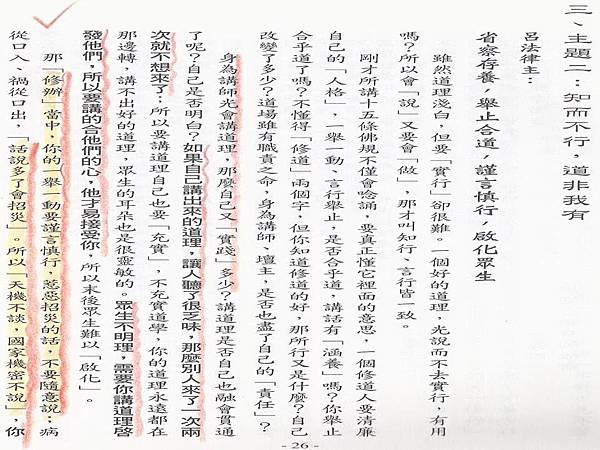 三、主題二：知而不行，道非我有
呂法律主：
省察存養，舉止合道，謹言慎行，啟化眾生
雖然道理淺白，但要「實行」卻很難。一個好的道理，光說而不去實行，有用
嗎？所以會「說」又要會「做」，那才叫知行、言行皆一致。
剛才所講十五條佛規不僅會唸誦，要真正懂它裡面的意思，一個修道人要清廉
自己的「人格」，一舉一動、言行舉止，是否合乎道，講話有「涵養」嗎？你舉止
合乎道了嗎？不懂得「修道」兩個字，但你知道修道的好，那所行又是什麼？自己
改變了多少？道場雖有職責之命，身為講師、壇主，是否也盡了自己的「責任」？
身為講師光會講道理，那麼自己又「實踐」多少？講道理是否自己也融會貫通
了呢？自己是否明白？如果自己講出來的道理，讓人聽了很乏味，那麼別人來了一次兩
次就不想來了；所以要講道理自己也要「充實」，不充實道學，你的道理永遠都在
那邊轉，講不出好的道理，眾生的耳朵也是很靈敏的。眾生不明理，需要你講道理啓
發他們，所以要講的合他們的心，他才易接受你，所以末後眾生難以「啟化」。
那「修辦」當中，你的一舉一動要謹言慎行，惹惡招災的話，不要隨意說；病
從口入、禍從口出，「話說多了會招災」。所以「天機不談，國家機密不說」，你
- 26 -